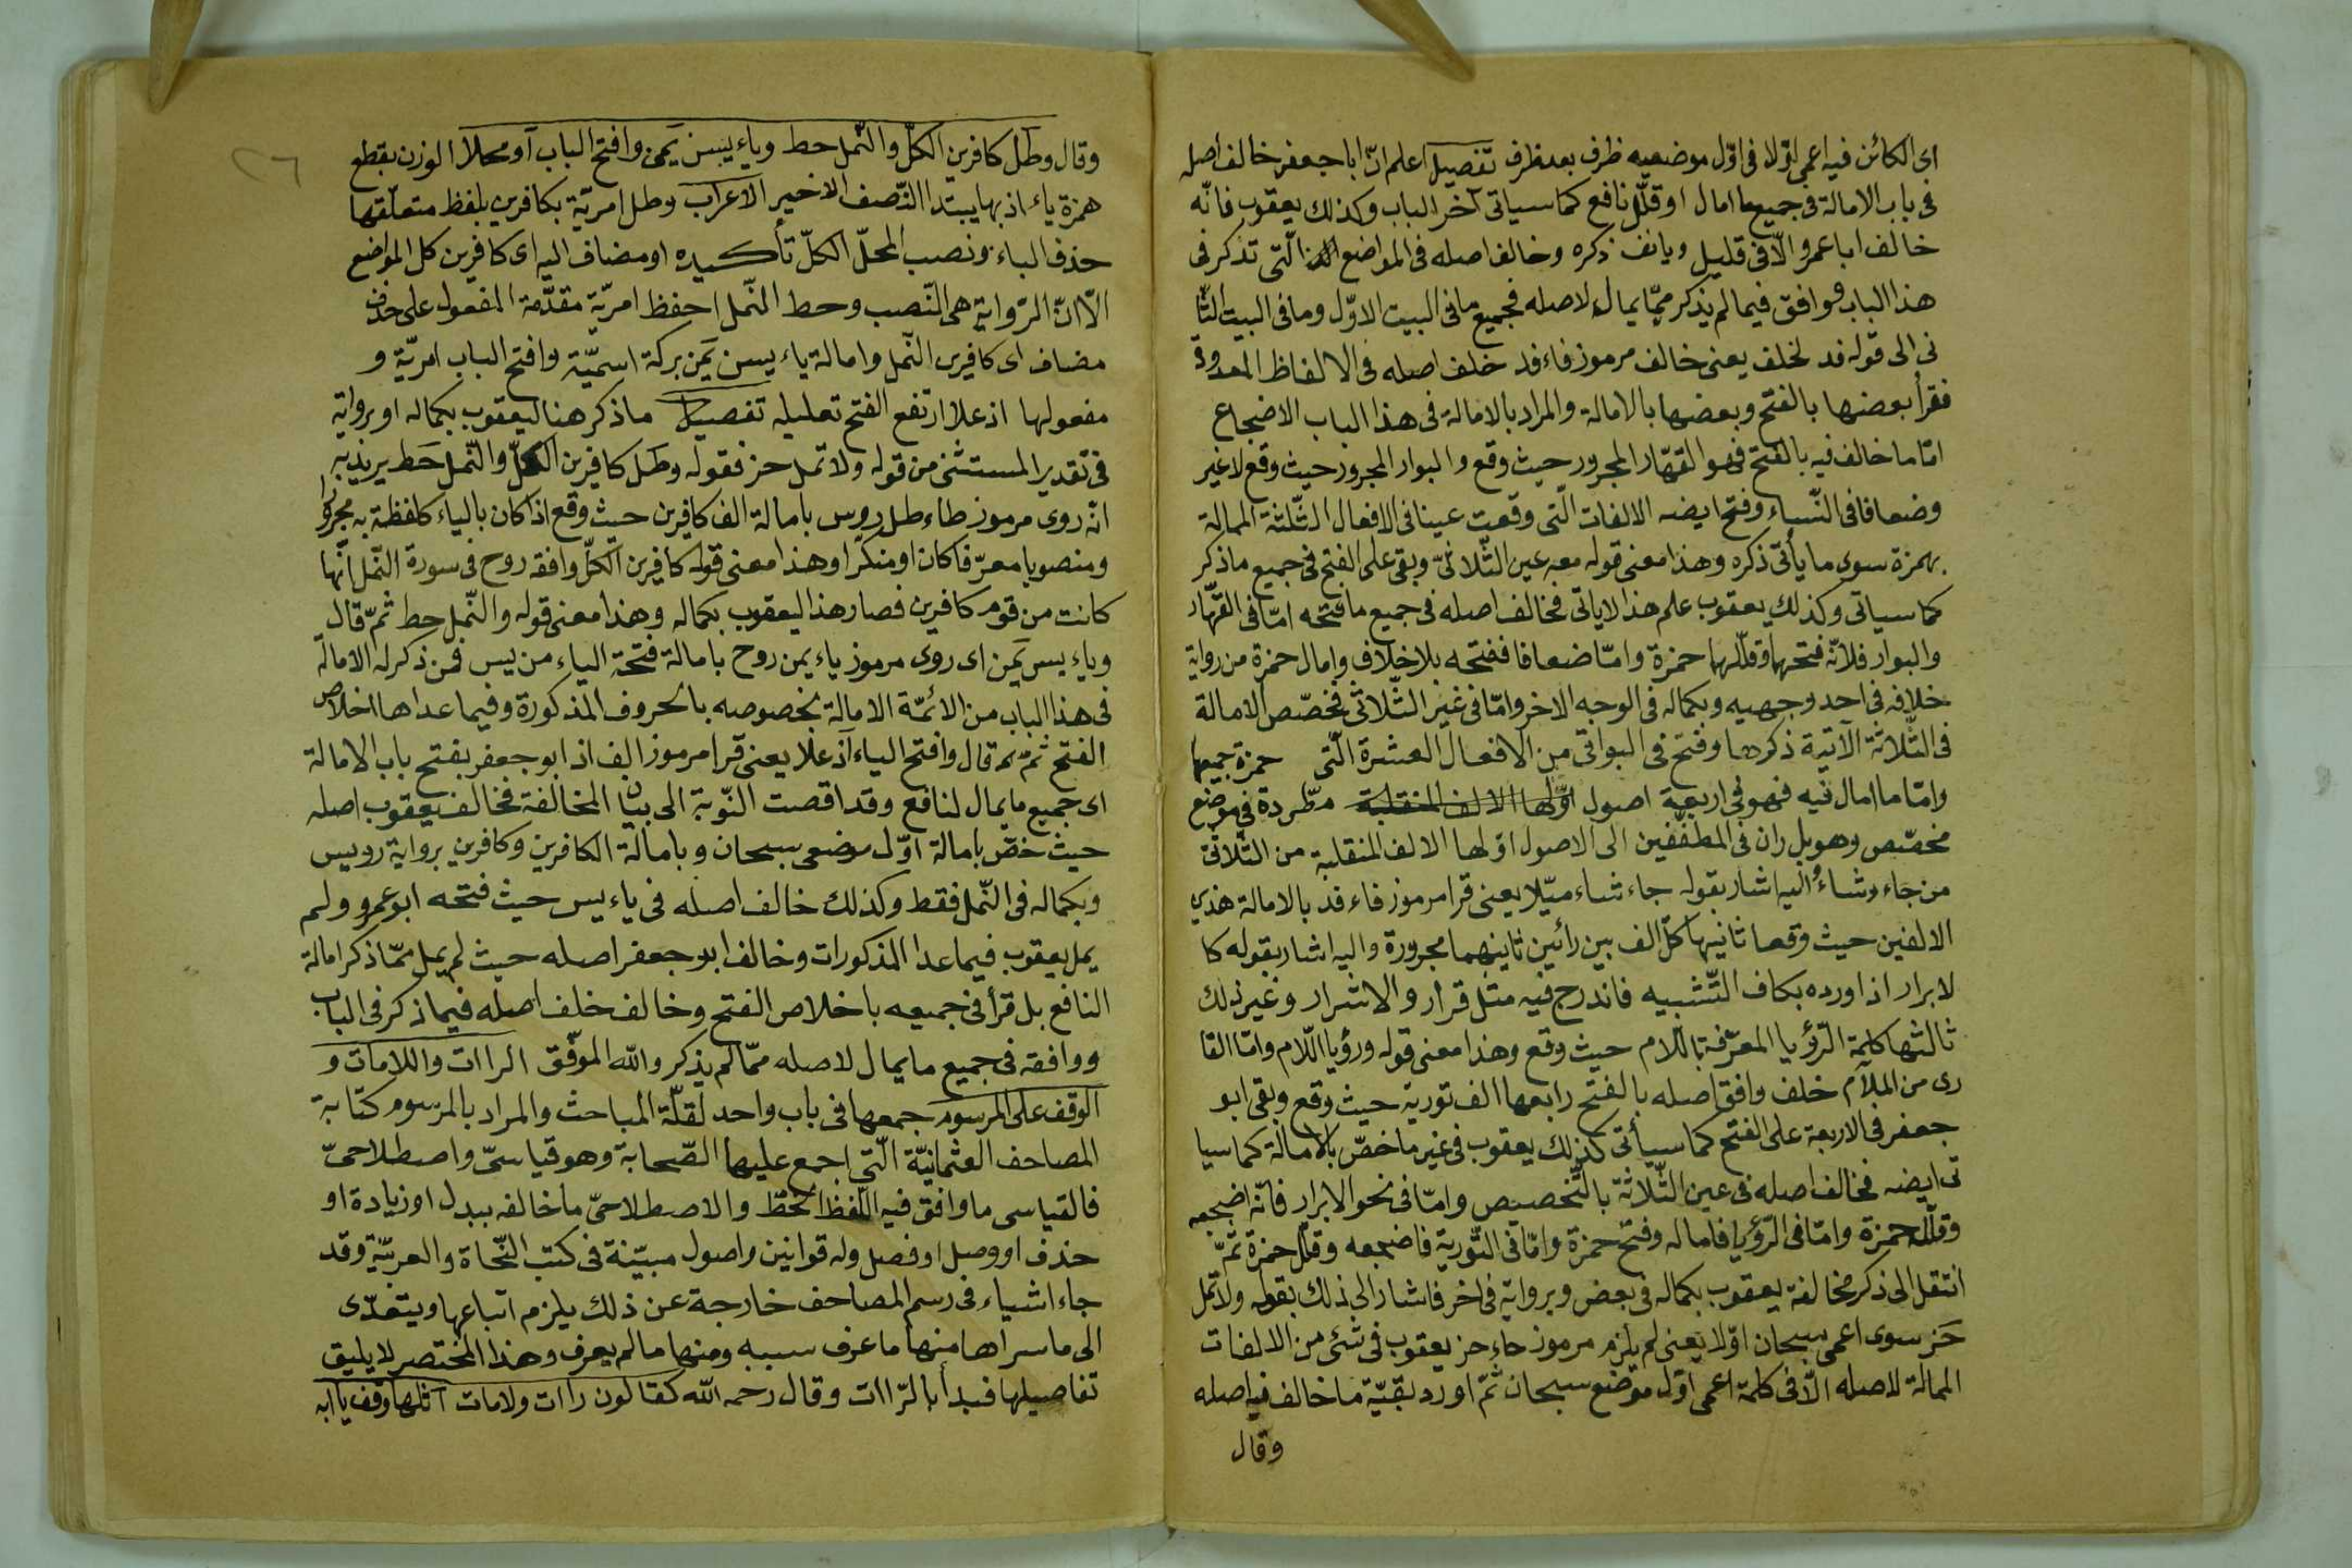 اى الكائن فيه اعمى اوّلا فى اوّل موضعيه ظرف بعد ظرف تفصيل اعلم انّ ابا جعفر خالف اصله
فى باب الامالة فى جميع ما امال او قلّل نافع كما سياتى آخر الباب وكذلك يعقوب فانّه
خالف ابا عمرو الّا فى قليل ويانف ذكره وخالف اصله فى المواضع التى تذكر فى
هذا الباب فوافق فيما لم يذكر ممّا يمال لاصله فجميع ما فى البيت الاوّل وما فى البيت الثا
نى الى قوله فد لخلف يعنى خالف مرموز فاء فد خلف اصله فى الالفاظ المعدودة
فقرأ بعضها بالفتح وبعضها بالامالة والمراد بالامالة فى هذا الباب الاضجاع
امّا ما خالف فيه بالفتح فهو القهّار المجرور حيث وقع والبوار المجرور حيث وقع لا غير
وضعافا فى النّساء وفتح ايضه الالفات الّتى وقعت عينا فى الافعال الثّلثة الممالة
بهمزة سوى ما يأتى ذكره وهذا معنى قوله معه عين الثّلاثىّ وبقى على الفتح فى جميع ما ذكر
كما سياتى وكذلك يعقوب علم هذا لاياتى فخالف اصله فى جميع ما فتحه امّا فى القهّار
والبوار فلانّه فتحهما وقلّلهما حمزة وامّا ضعافا ففتحه بلا خلاف وامال حمزة من رواية
خلافه فى احد وجهيه وبكماله فى الوجه الاخر وامّا فى غير الثّلاثى فخصّص الامالة
فى الثّلاثة الآتية ذكرها وفتح فى البواقى من الافعال العشرة الّتى حمزة جميعها
وامّا ما امال فيه فهو فى اربعة اصول اوّلها الالف المنقلبة مطّردة فى موضع
مخصّص وهو بل ران فى المطفّفين الى الاصول اوّلها الالف المنقلبة من الثّلاثى
من جاء وشاء واليه اشار بقوله جاء شاء ميّلا يعنى قرا مرموز فاء فد بالامالة هذين
الالفين حيث وقعا ثانيها كلّ الف بين رائين ثانيهما مجرورة واليه اشار بقوله كا
لابرار اذا اورده بكاف التّشبيه فاندرج فيه مثل قرار والاشرار وغير ذلك
ثالثها كلمة الرّؤيا المعرّفة باللام حيث وقع وهذا معنى قوله ورؤيا اللّام وامّا القا
رى من الملام خلف وافق اصله بالفتح رابعها الف تورية حيث وقع وبقى ابو
جعفر فى الاربعة على الفتح كما سيأتى كذلك يعقوب فى غير ما خصّ بالامالة كما سيا
تى ايضه فخالف اصله فى عين الثّلاثة بالتّخصيص وامّا فى نحو الابرار فانّه اضجعه
وقلّله حمزة وامّا فى الرّؤيا فاماله وفتح حمزة وامّا فى التّورية فاضجعه وقلّل حمزة ثمّ
انتقل الى ذكر مخالفة يعقوب بكماله فى بعض وبرواية فى اخر فاشار الى ذلك بقوله ولا تمل
حز سوى اعمى سبحان اوّلا يعنى لم يلزم مرموز حاء حز يعقوب فى شئ من الالفات
الممالة لاصله الّا فى كلمة اعمى اوّل موضع سبحان ثمّ اورد بقيّة ما خالف فيه اصله
وقال
٢٦
وقال وطل كافرين الكلّ والنّمل حط وياء يس يمن وافتح الباب آو محلا الوزن بقطع
همزة ياء اذ بها يبتدا النّصف الاخير الاعراب وطل امريّة بكافرين بلفظ متعلّقها
حذف الباء ونصب المحلّ الكلّ تأكيده او مضاف اليه اى كافرين كل المواضع
الّا انّ الرّواية هى النّصب وحط النّمل احفظ امريّة مقدّمة المفعول على حذف
مضاف اى كافرين النّمل وامالة ياء يس يمن بركة اسميّة وافتح الباب امريّة و
مفعولها اذ علا ارتفع الفتح تعليله تفصيل ما ذكر هنا ليعقوب بكماله او برواية
فى تقدير المستثنى من قوله ولا تمل حز فقوله وطل كافرين الكلّ والنّمل حط يريد به
انّه روى مرموز طاء طل رويس بامالة الف كافرين حيث وقع اذا كان بالياء كلفظه به مجرورا
ومنصوبا معرّفا كان او منكّرا وهذا معنى قوله كافرين الكلّ وافقه روح فى سورة النّمل انّها
كانت من قوم كافرين فصار هذا ليعقوب بكماله وهذا معنى قوله والنّمل حط ثمّ قال
وياء يس يمن اى روى مرموز ياء يمن روح بامالة فتحة الياء من يس فمن ذكر له الامالة
فى هذا الباب من الائمّة الامالة بخصوصه بالحروف المذكورة وفيما عداها اخلاص
الفتح ثمّ قال وافتح الياء آذ علا يعنى قرا مرموز الف اذ ابو جعفر بفتح باب الامالة
اى جميع ما يمال لنافع وقد اقصت النّوبة الى بيان المخالفة فخالف يعقوب اصله
حيث خصّ بامالة اوّل موضعى سبحان وبامالة الكافرين وكافرين برواية رويس
وبكماله فى النّمل فقط وكذلك خالف اصله فى ياء يس حيث فتحه ابو عمرو ولم
يمل يعقوب فيما عدا المذكورات وخالف ابو جعفر اصله حيث لم يمل ممّا ذكر امالة
النافع بل قرأ فى جميعه باخلاص الفتح وخالف خلف اصله فيما ذكر فى الباب
ووافقه فى جميع ما يمال لاصله ممّا لم يذكر والله الموفّق الراات واللامات و
الوقف على المرسوم جمعها فى باب واحد لقلّة المباحث والمراد بالمرسوم كتابة
المصاحف العثمانيّة الّتى اجمع عليها الصّحابة وهو قياسىّ واصطلاحىّ
فالقياسى ما وافق فيه اللّفظ الخطّ والاصطلاحىّ ما خالفه ببدل او زيادة او
حذف او وصل او فصل وله قوانين واصول مبيّنة فى كتب النّحاة والعربيّة وقد
جاء اشياء فى رسم المصاحف خارجة عن ذلك يلزم اتباعها ويتعدّى
الى ما سراها منها ما عرف سببه ومنها ما لم يعرف وهذا المختصر لا يليق
تفاصيلها فبدأ بالرّاات وقال رحمه الله كقالون راات ولامات آتلها وقف يا ابه